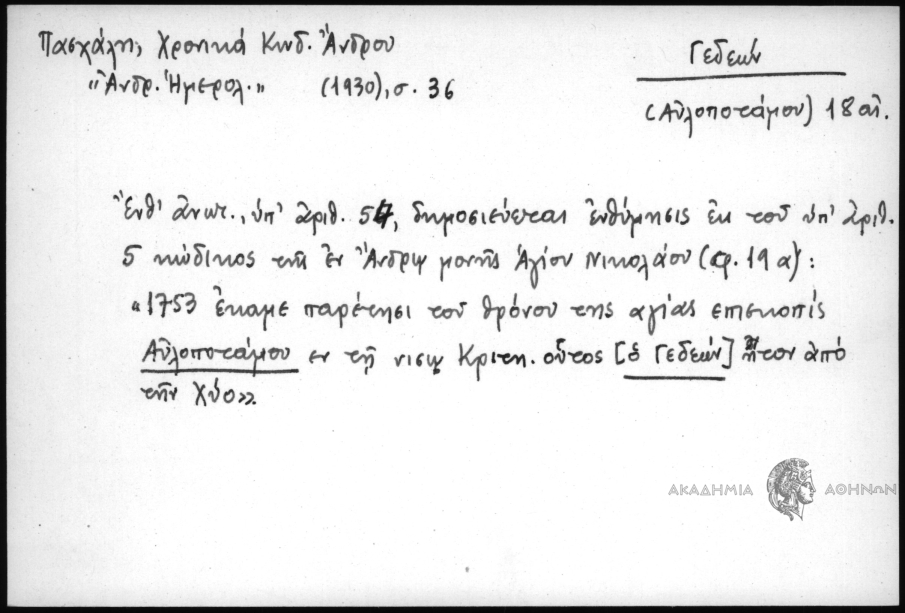 Πασχάλη, Χρονικά Κυδ. Ἄνδρου
"Ἀνδρ. Ἡμερολ." (1930), σ. 36
Γεδεών
(Αὐλοποτάμου) 18 αἰ.
Ἔνθ' ἀνωτ., ὑπ' ἀριθ. 57, δημοσιεύεται ἐνθύμησις ἐκ τοῦ ὑπ' ἀριθ.
5 κώδικος τῆς ἐν Ἄνδρῳ μονῆς Ἁγίου Νικολάου (φ. 19 α):
«1753 ἔκαμε παρέτησι τοῦ θρόνου της αγίας επισκοπίς
Αὐλοποτάμου εν τῇ νισῳ Κριτη. οὗτος [ὁ Γεδεών] ἦτον ἀπό
τὴν Χύο».
ΑΚΑΔΗΜΙΑ ΑΘΗΝΩΝ